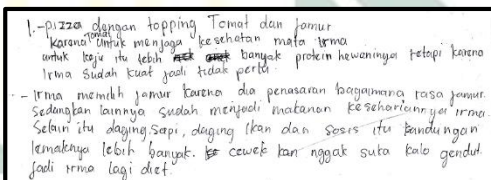 1. - pizza dengan topping Tomat dan jamur
karena Tomat untuk menjaga kesehatan mata irma
untuk keju itu lebih banyak protein hewaninya tetapi karena
Irma sudah kuat jadi tidak perlu.
- Irma memilih jamur karena dia penasaran bagaimana rasa jamur.
Sedangkan lainnya sudah menjadi makanan kesehariannya irma.
Selain itu daging sapi, daging ikan dan sosis itu kandungan
lemaknya lebih banyak. cewek kan nggak suka kalo gendut.
Jadi irma lagi diet.